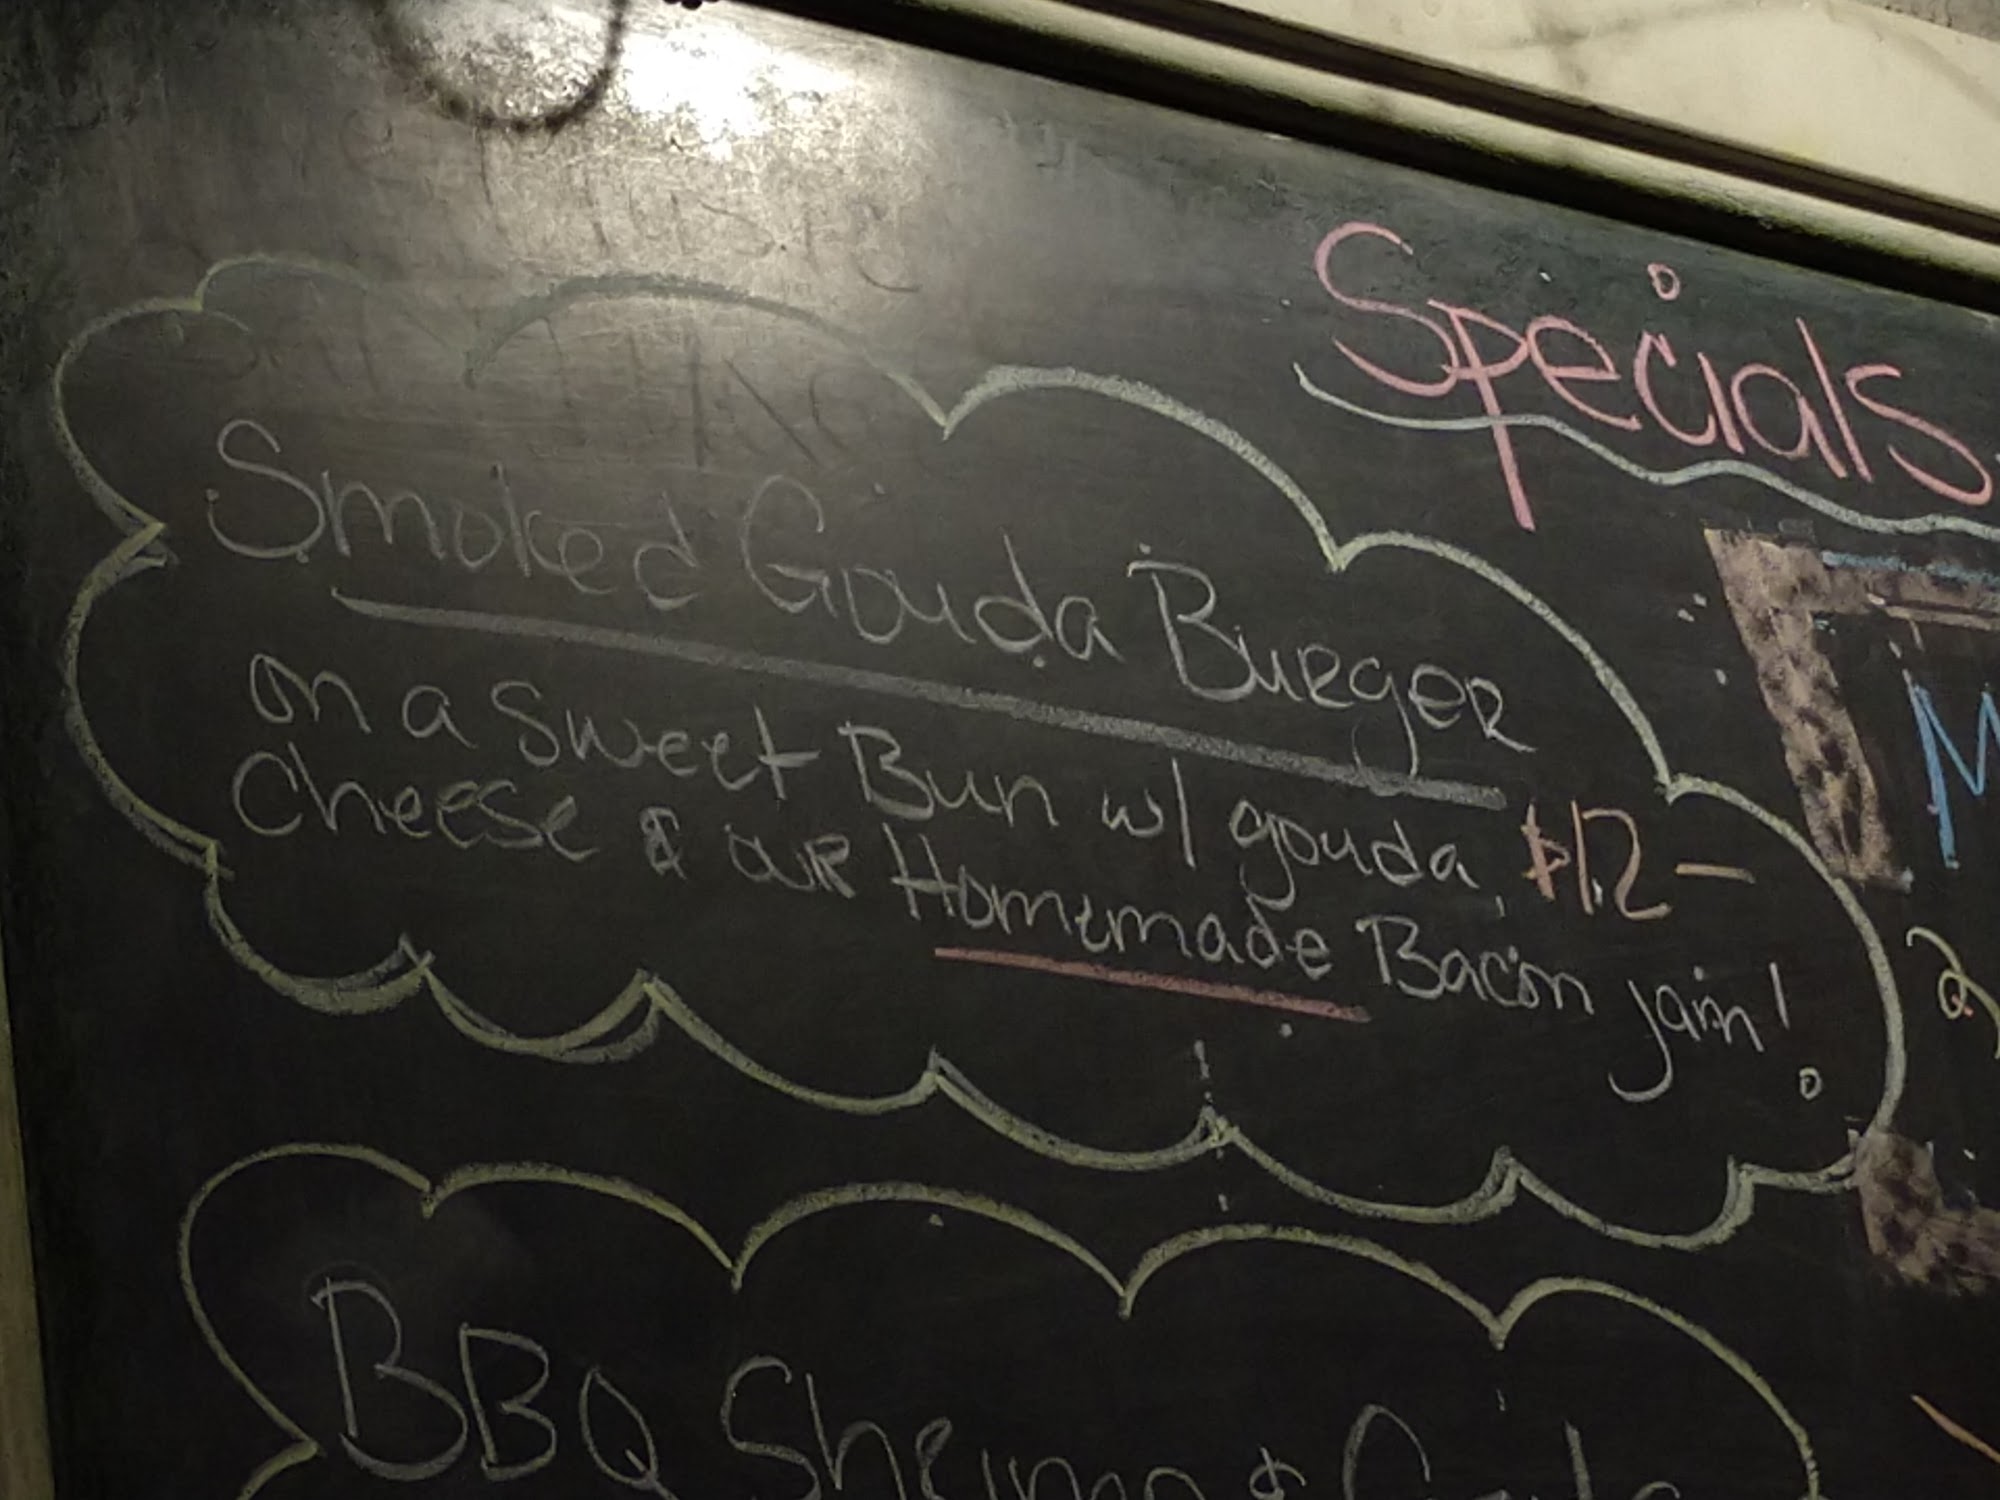 Specials
Smoked Gouda Burger
on a Sweet Bun w/ gouda $12-
Cheese & our Homemade Bacon jam!
M
2
BBQ Shrimp &